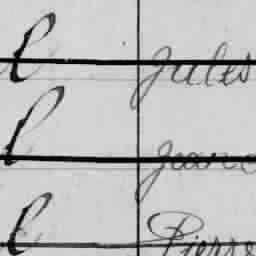 l Jules
l Jeanne
l Pierre